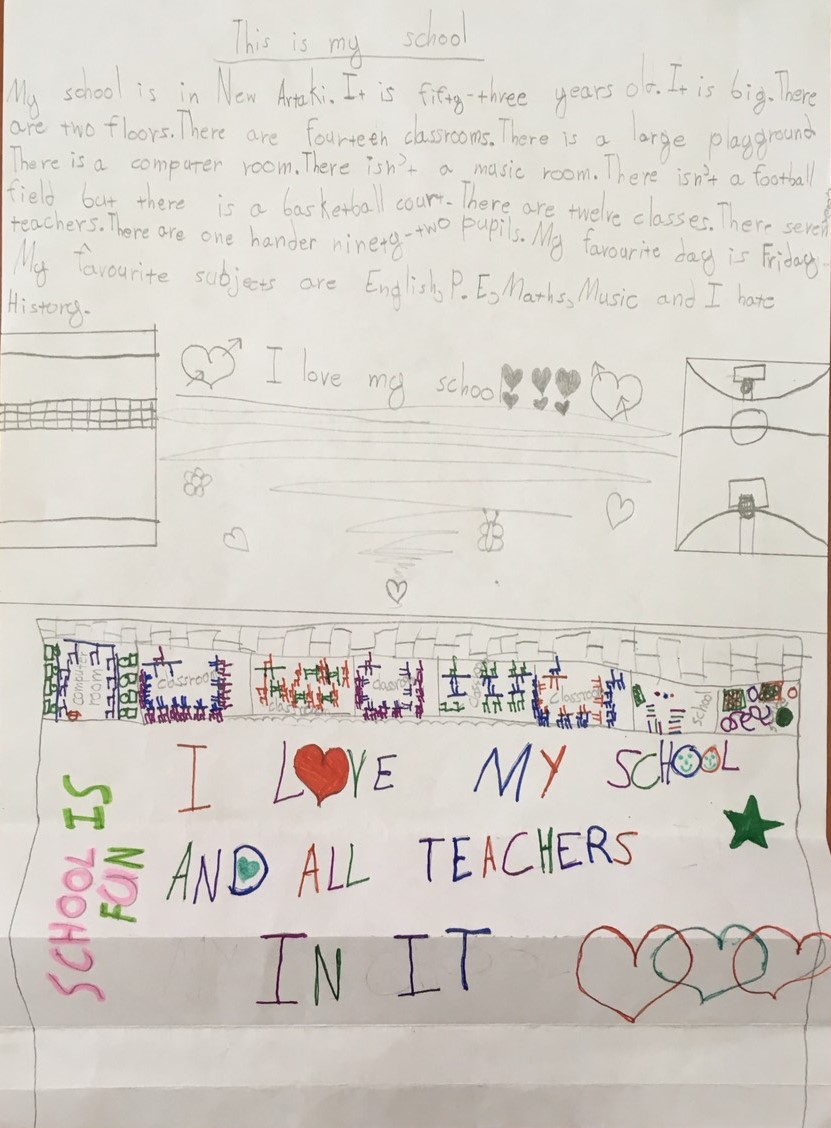 This is my school
My school is in New Artaki. It is fifty-three years old. It is big. There
are two floors. There are fourteen classrooms. There is a large playground
There is a computer room. There isn't a music room. There isn't a football
field but there is a basketball court. There are twelve classes. There seven
teachers. There are one hander ninety-two pupils. My favourite day is Friday.
My favourite subjects are English, P. E, Maths, Music and I hate
History.
I love my school
computer room
classroom
classroom
classroom
classroom
school
I LOVE MY SCHOOL
SCHOOL IS FUN
AND ALL TEACHERS
IN IT